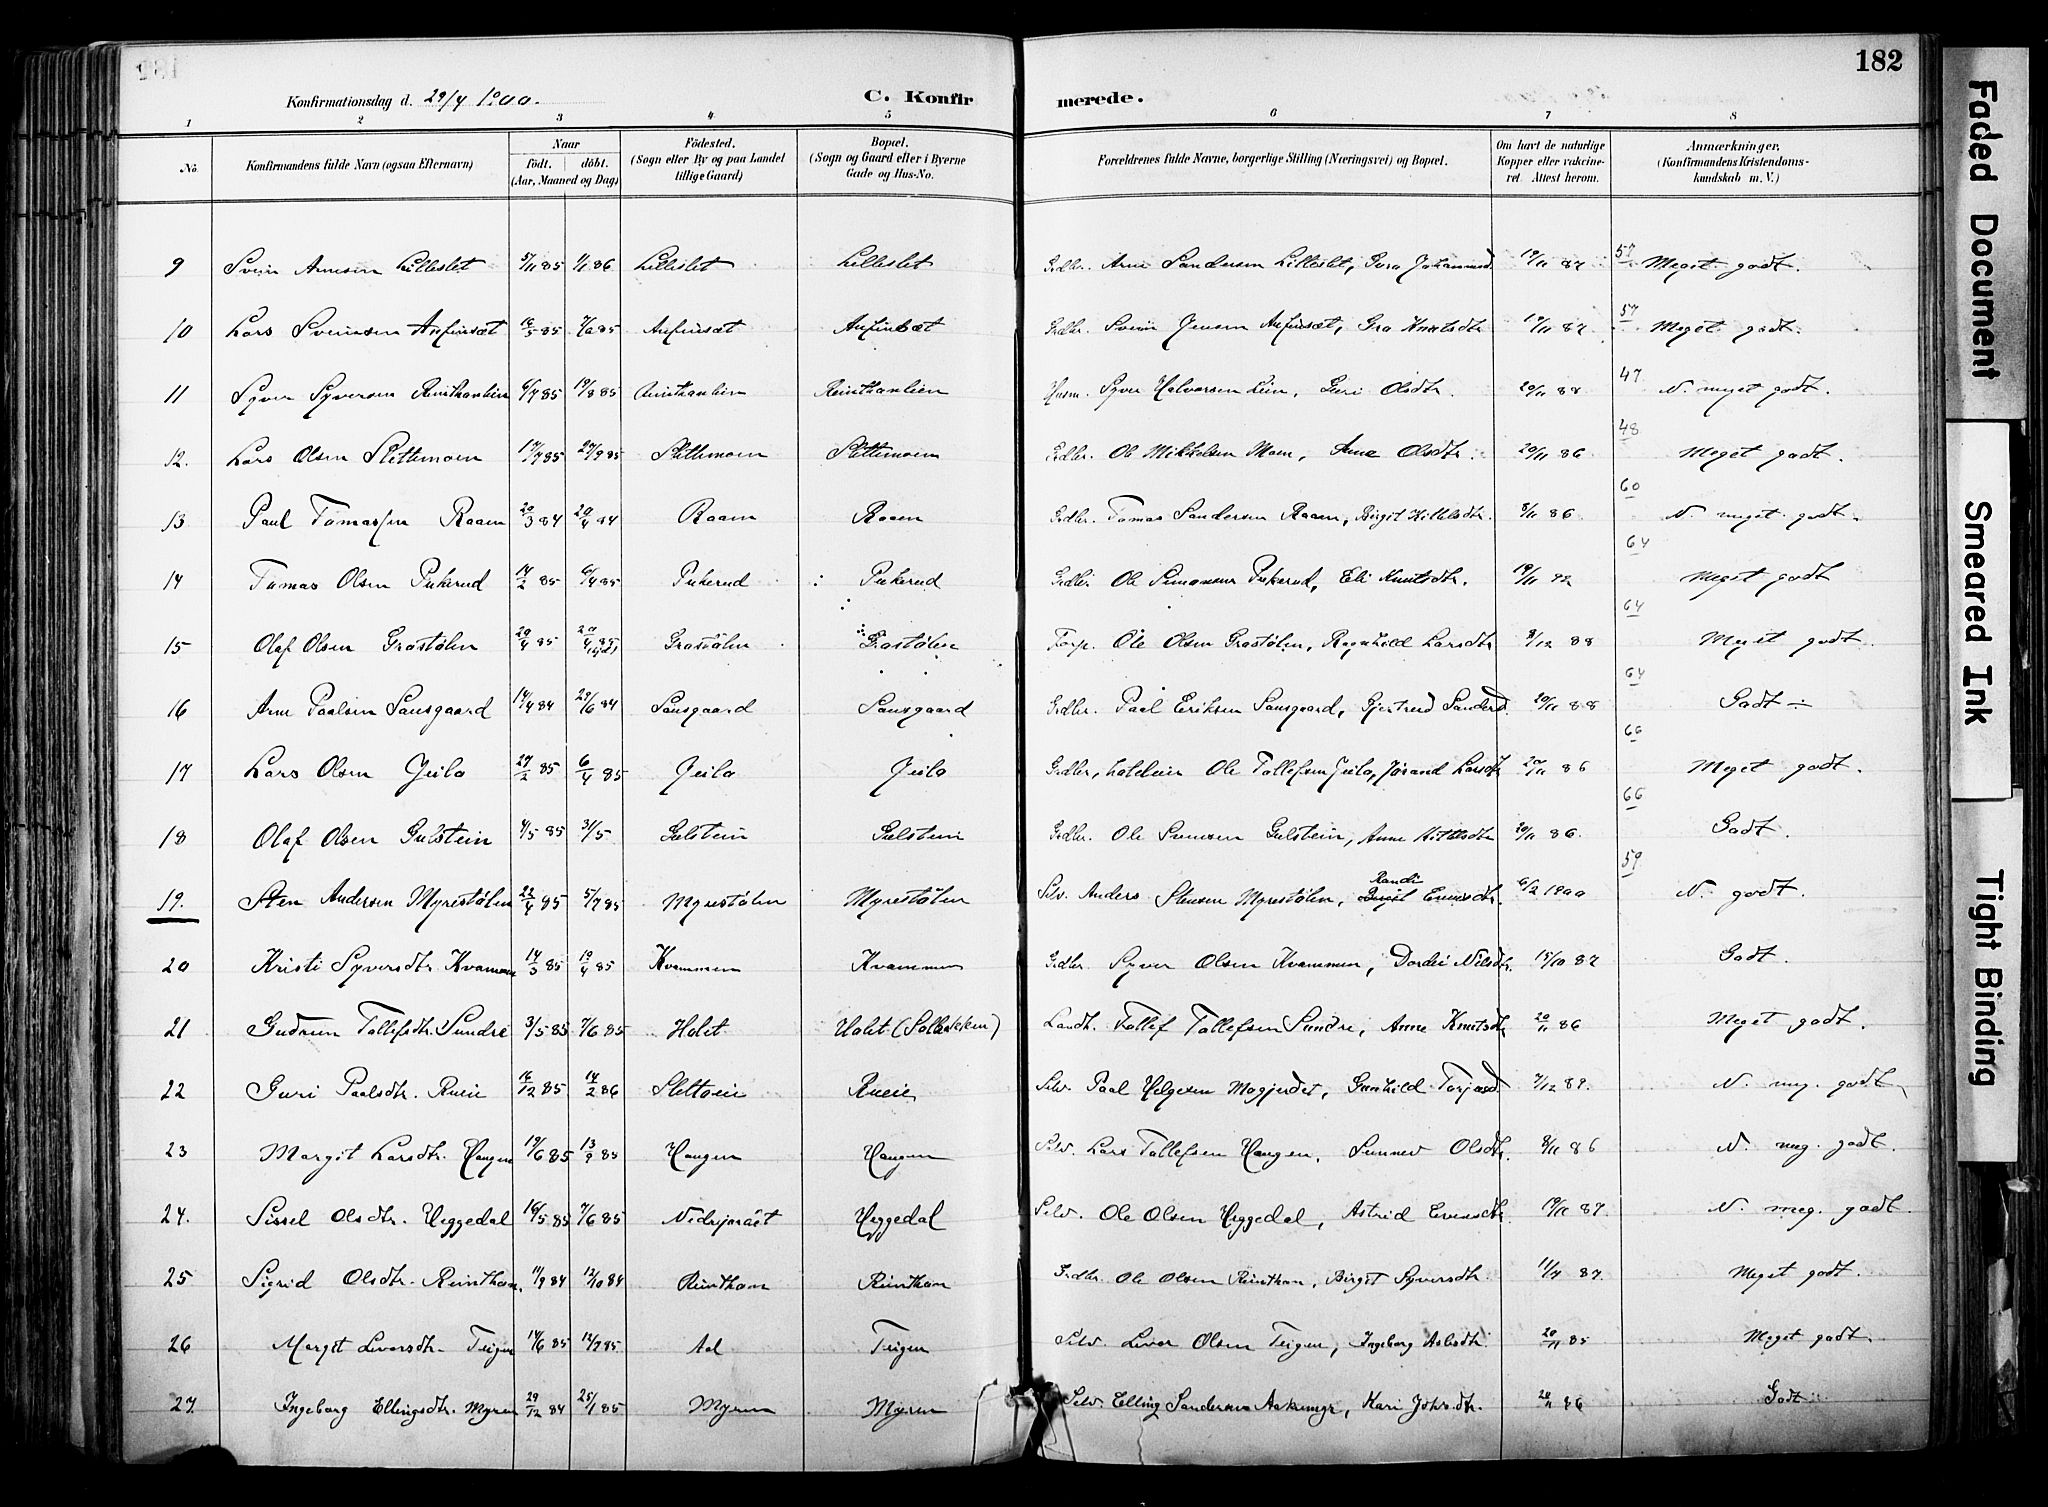 182
Konfirmationsdag d. 29/4 1900.
C. Konfirmerede.
1 2 3 4 5 6 7 8
No.
Konfirmandens fulde Navn (ogsaa Efternavn)
Naar
födt. döbt.
(Aar, Maaned og Dag)
Födested.
(Sogn eller By og paa Landet
tillige Gaard)
Bopæl.
(Sogn og Gaard efter i Byerne
Gade og Hus-No.
Forældrenes fulde Navne, borgerlige Stilling (Næringsvei) og Bopæl.
Om havt de naturlige
Kopper eller vakcine-
ret. Attest herom.
Anmærkninger.
(Konfirmandens Kristendoms-
kundskab m. V.)
9 Svein Arnesen Lilleslet 5/11 85 1/1 86 Lilleslet Lilleslet Grdbr. Arne Sandersen Lilleslet, Guro Johannesd. 19/11 87 57 Meget godt.
10 Lars Sveinsen Anfinset 16/5 85 7/6 85 Anfinset Anfinset Grdbr. Svein Jensen Anfinset, Gro Knutsdtr 19/11 87 57 Meget godt.
11 Syver Syversen Reinthanlien 6/7 85 19/8 85 Reinthanlien Reinthanlien Husm. Syver Halvorsen Lien, Guri Olsdtr. 20/11 88 47 N. meget godt.
12. Lars Olsen Slettemoen 17/7 85 27/9 85 Slettemoen Slettemoen Grdbr. Ole Mikkelsen Moen, Anne Olsdtr. 20/11 86 48 Meget godt.
13 Paul Tomassen Raaen 20/3 84 20/4 84 Raaen Raaen Grdbr. Tomas Sandersen Raaen, Birgit Kittelsdtr. 8/11 86 60 N. meget godt.
14 Tomas Olsen Pukerud 14/2 85 6/4 85 Pukerud Pukerud Grdbr. Ole Simonsen Pukerud, Eli Knutsdtr. 19/11 92 64 Meget godt
15 Olaf Olsen Grostølen 20/4 85 20/4 85 Grostølen Grostølen Torp. Ole Olsen Grostølen, Ragnhild Larsdtr 8/12 88 64 Meget godt.
16 Arne Paalsen Sansgaard 14/4 84 29/6 84 Sansgaard Sansgaard Grdbr. Paal Eriksen Sansgaard, Gjertrud Sandersd. 20/11 88 64 Godt ÷
17 Lars Olsen Jeilo 27/2 85 6/4 85 Jeilo Jeilo Grdbr, Ole Tollefsen Jeilo, Jørand Larsdtr 20/11 86 66 Meget godt.
18 Olaf Olsen Gulstein 4/5 85 31/5 Gulstein Gulstein Grdbr. Ole Svensen Gulstein, Anne Kittelsdtr 20/11 86. 66 Godt.
19. Sten Andersen Myrestølen 22/4 85 5/7 85 Myrestølen Myrestølen Selv. Anders Stensen Myrestølen, Randi Evensdtr. 6/2 1900 59 N. godt.
20 Kristi Syversdtr. Kvammen 14/3 85 19/4 85 Kvammen Kvammen Grdbr. Syver Olsen Kvammen, Dordei Nilsdtr. 15/10 87 Godt.
21 Gudrun Tollefsdtr. Sundre 3/5 85 7/6 85 Holet Holet Landh. Tollef Tollefsen Sundre, Anne Knutsdtr 20/11 86 Meget godt.
22 Guri Paalsdtr. Rueie 16/12 85 14/2 86 Slettoeie Rueie Selv. Paal Helgesen Mogjerdet, Gunhild Torjusd. 7/12 89. N. meg. godt
23 Margit Larsdtr. Haugen 19/6 85 13/9 85 Haugen Haugen Selv. Lars Tollefsen Haugen, Sunnev Olsdtr. 8/11 86 N. meg. godt.
24. Sissel Olsdtr. Heggedal 16/5 85 7/6 85 Heggedal Selv. Ole Olsen Heggedal, Astrid Evensdtr. 19/11 87. N. meg. godt.
25 Sigrid Olsdtr. Reinthan. 11/9 84 12/10 84 Reinthan Reinthan Grdbr. Ole Olsen Reinthan, Birgit Syversdtr. 11/7 87. Meget godt.
26 Margit Leversdtr. Teigen 14/6 85 12/7 85 Aal Teigen Selv. Lever Olsen Teigen, Ingeborg Aslesdtr. 20/11 85 Meget godt.
27. Ingeborg Ellingsdtr. Myren 29/12 84 25/1 85 Myren Myren Selv. Elling Sandersen, Kari 20/11 86 Godt
Faded Document
Smeared Ink
Tight Binding